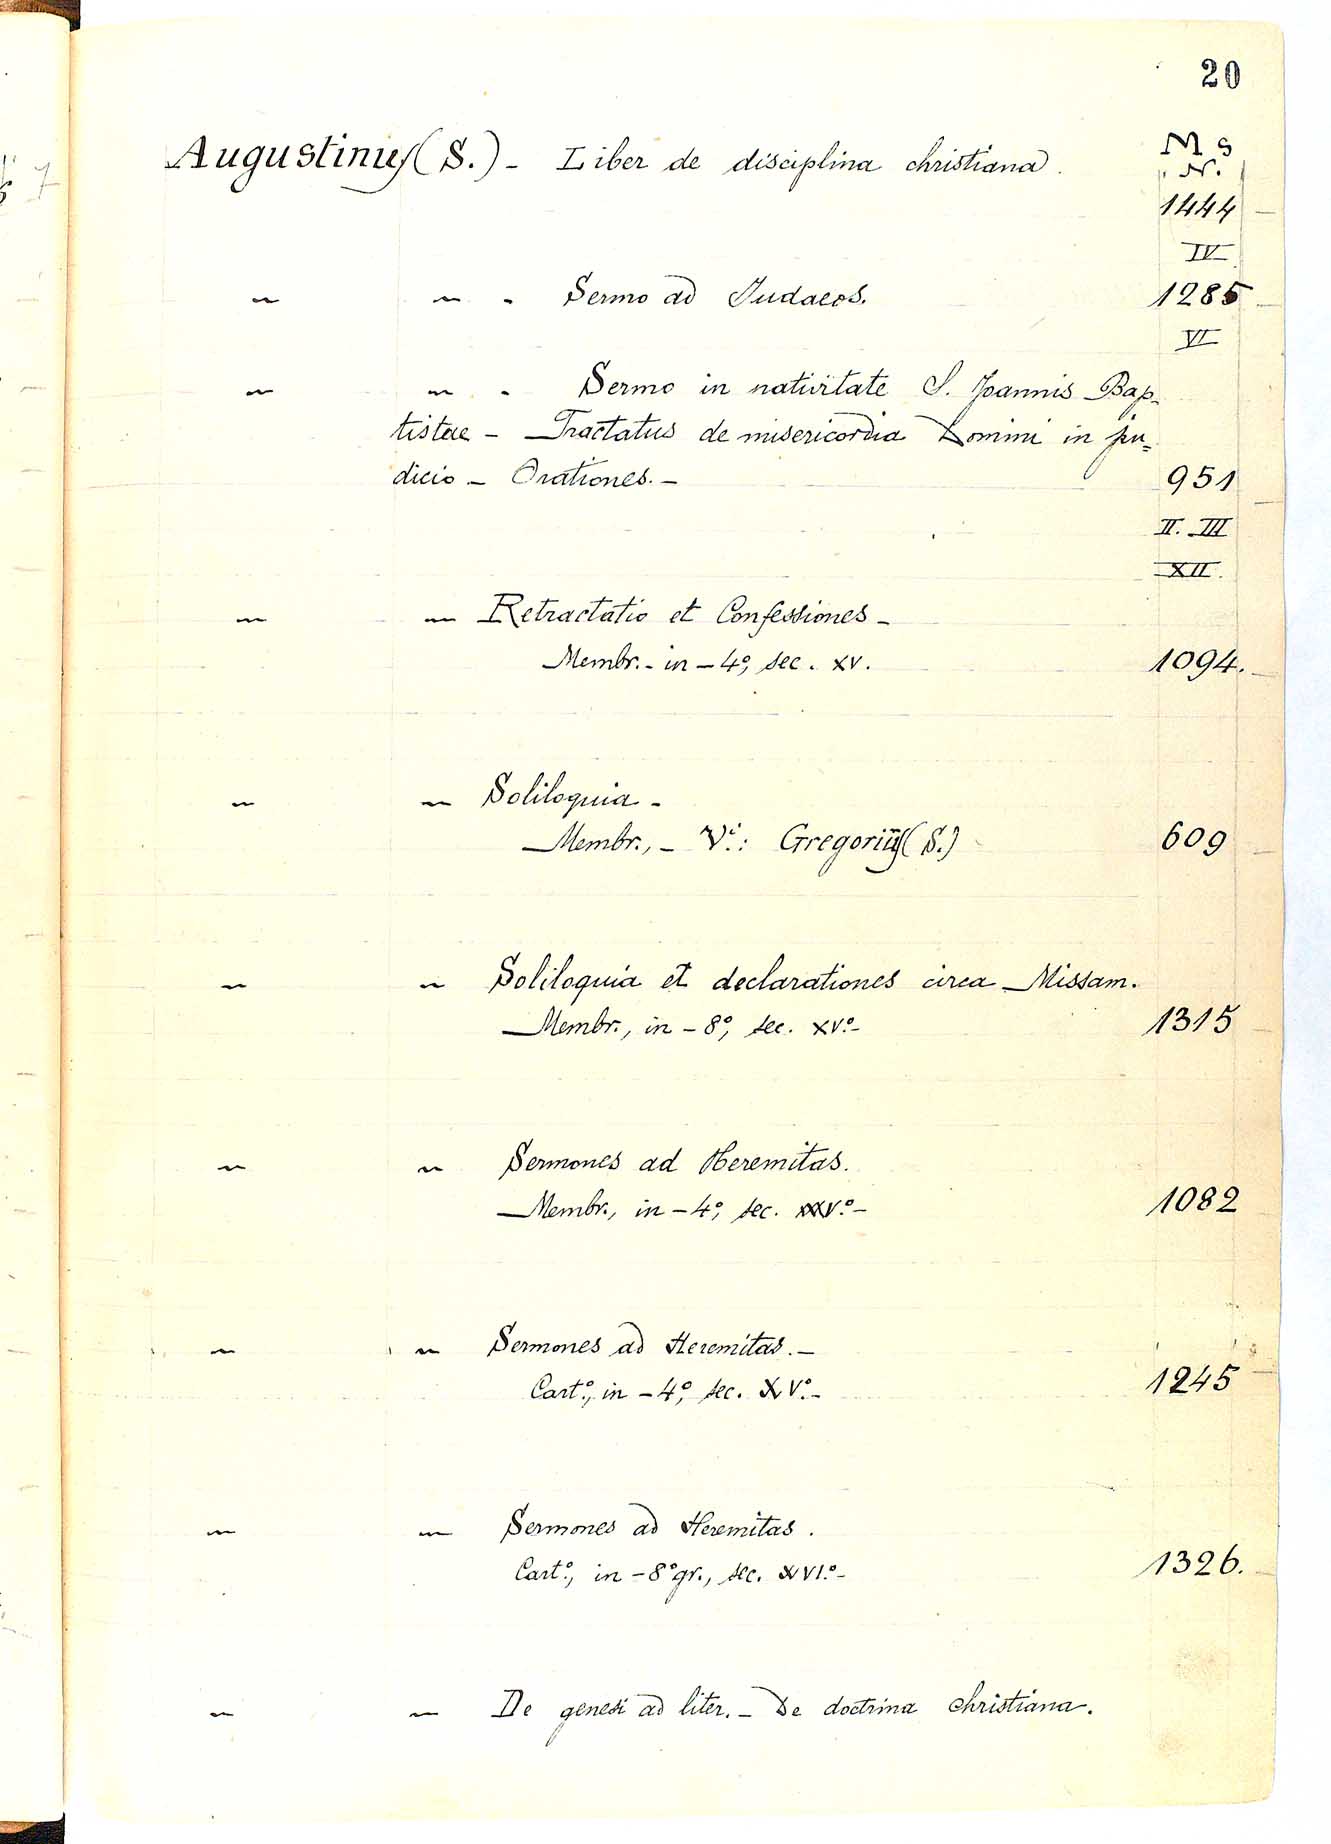 20
Augustinus (S.) - Liber de disciplina christiana.
Ms
N.
1444
IV
" " - Sermo ad Judaeos.
1285
VI
" " - Sermo in nativitate S. Joannis Bap-
tistae - Tractatus de misericordia Domini in ju=
dicio - Orationes. -
951
II. III
XII.
" " Retractatio et Confessiones -
Membr. - in - 4°, sec. XV.
1094.
" " Soliloquia -
Membr., - Vi: Gregorius (S.)
609
" " Soliloquia et declarationes circa Missam.
Membr., in - 8°, sec. XV.° -
1315
" " Sermones ad Heremitas.
Membr., in - 4°, sec. XV.° -
1082
" " Sermones ad Heremitas. -
Cart.°, in - 4°, sec. XV.° -
1245
" " Sermones ad Heremitas.
Cart.°, in - 8° gr., sec. XVI.° -
1326.
" " De genesi ad liter. - De doctrina christiana.